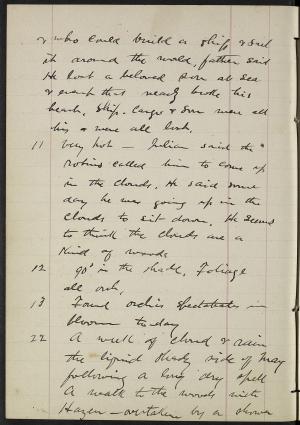 & who could build a ship & sail
it around the world, father said
He lost a beloved son at sea
& event that nearly broke his
heart. Ship. Cargo & Son were all
his & were all lost.
11 Very hot — Julian said the "
robins called him to come up
in the clouds. He said some
day he was going up in the
clouds to sit down. He seems
to think the clouds are a
kind of woods
12 90° in the shade. Foliage
all out.
13 Found orchis spectabilis in
bloom to-day
22 A week of cloud & rain
the liquid shady side of May
following a long dry spell
A walk to the woods with
Hazen — overtaken by a shower